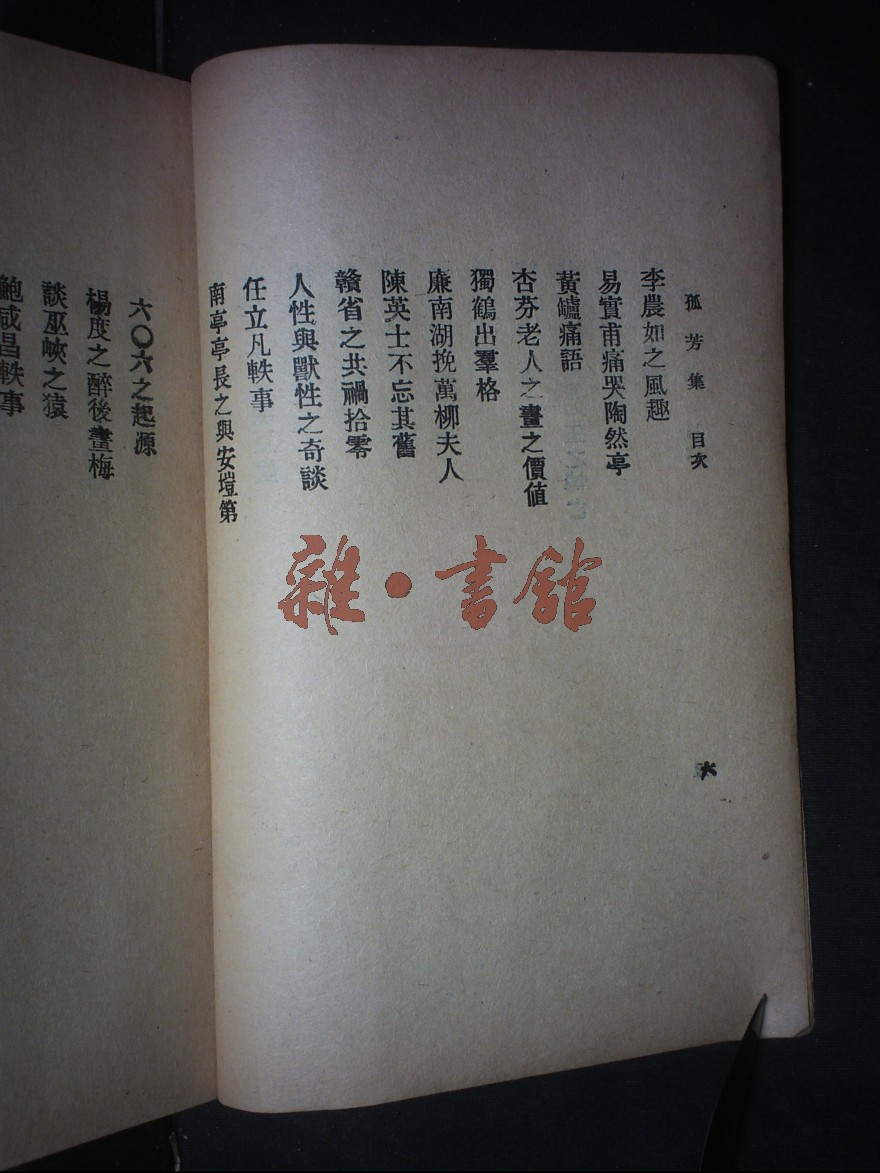 孤芳集 目次
李農如之風趣
易實甫痛哭陶然亭
黃罏痛語
杏芬老人之畫之價值
獨鶴出羣格
廉南湖挽萬柳夫人
陳英士不忘其舊
贛省之共禍拾零
人性與獸性之奇談
任立凡軼事
南亭亭長之與安塏第
六
六〇六之起源
楊度之醉後畫梅
談巫峽之猿
鮑咸昌軼事
雜·書館